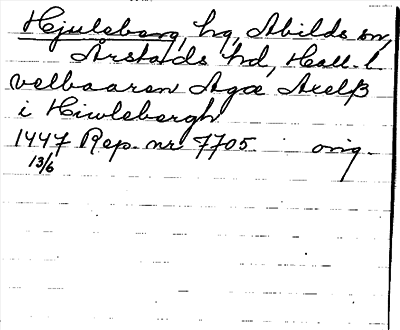 Hjuleberg, hg, Abilds sn,
Årstads hd, Hall. l.
velbaaren Agæ Axelß
i Hiwlebergh
1447 Rep. nr 7705 orig.
13/6